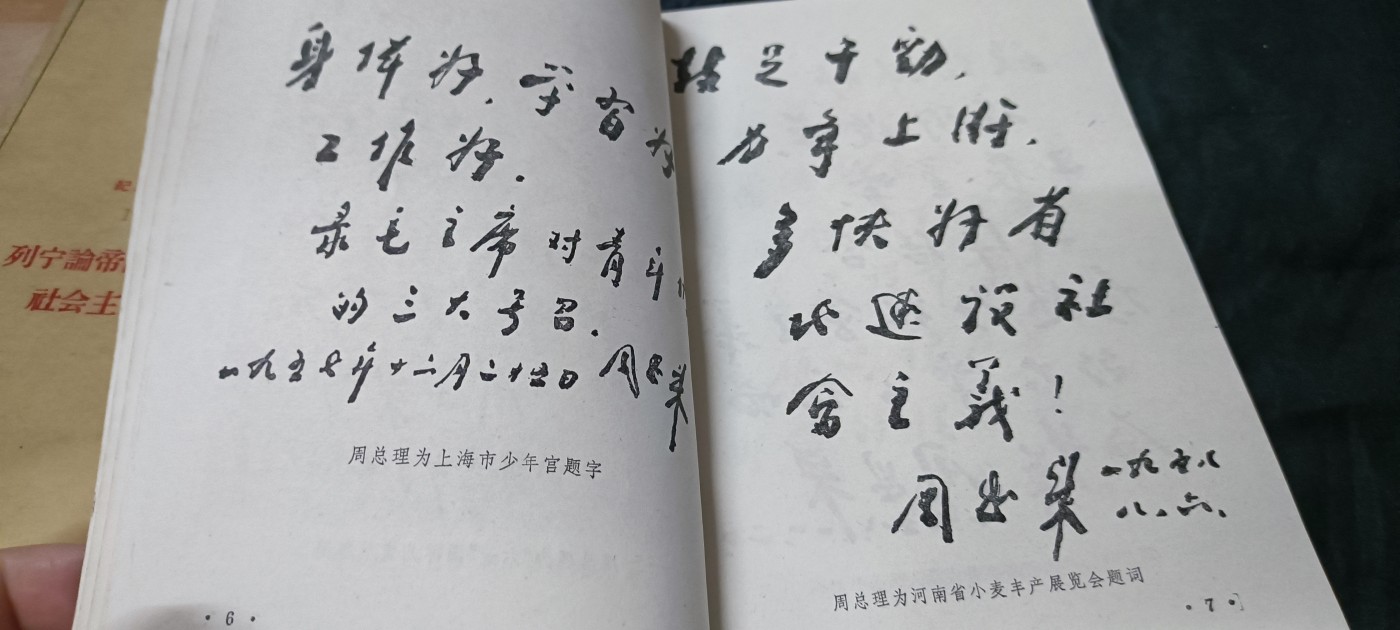 身体好，学习好
工作好．
录毛主席对青年们
的三大号召．
一九五七年十二月二十五日 周恩来
周总理为上海市少年宫题字
·6·
鼓足干劲，
力争上游，
多快好省
地建设社
会主义！
周恩来 一九五八
八．六．
周总理为河南省小麦丰产展览会题词
·7·
列宁論帝
社会主